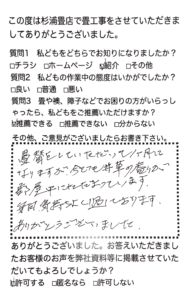 この度は杉浦畳店で畳工事をさせていただきま
してありがとうございました。
質問1 私どもをどちらでお知りになりましたか?
□チラシ □ホームページ ☑紹介 □その他
質問2 私どもの作業中の態度はいかがでしたか?
□良い □普通 □悪い
質問3 畳や襖、障子などでお困りの方がいらっし
ゃったら、私どもをご推薦いただけますか?
☑推薦できる □推薦できない □分からない
その他、ご意見がございましたらお書き下さい。
畳替をしていただいて1ヶ月に
なりますが、今でも井草の香りが
部屋中に
ありがとうございました。
ありがとうございました。お答えいただきまし
たお客様のお声を弊社資料等に掲載させていた
だいてもよろしでしょうか?
☑許可する □匿名なら □許可しない